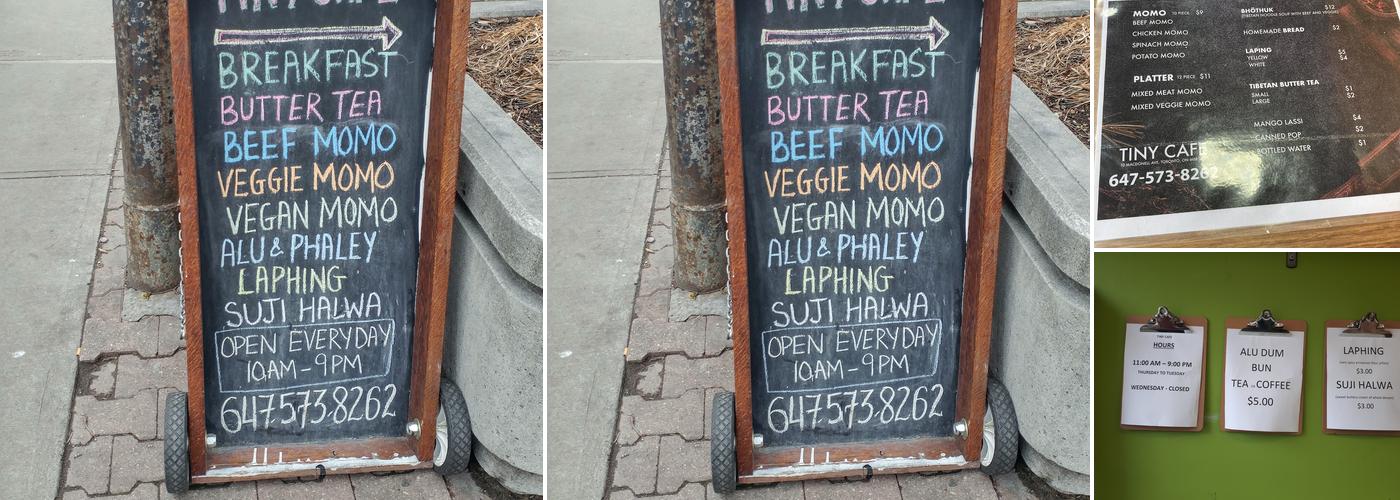 TINY CAFE
BREAKFAST
BUTTER TEA
BEEF MOMO
VEGGIE MOMO
VEGAN MOMO
ALU & PHALEY
LAPHING
SUJI HALWA
OPEN EVERYDAY
10AM - 9PM
647-573-8262
TINY CAFE
BREAKFAST
BUTTER TEA
BEEF MOMO
VEGGIE MOMO
VEGAN MOMO
ALU & PHALEY
LAPHING
SUJI HALWA
OPEN EVERYDAY
10AM - 9PM
647-573-8262
MOMO 10 PIECE $9
BEEF MOMO
CHICKEN MOMO
SPINACH MOMO
POTATO MOMO
PLATTER 12 PIECE $11
MIXED MEAT MOMO
MIXED VEGGIE MOMO
TINY CAFE
10 MACDONELL AVE, TORONTO, ON
647-573-8262
BHÖTHUK $12
(TIBETAN NOODLE SOUP WITH BEEF AND VEGGIE)
HOMEMADE BREAD $2
LAPING
YELLOW $5
WHITE $4
TIBETAN BUTTER TEA
SMALL $1
LARGE $2
MANGO LASSI $4
CANNED POP $2
BOTTLED WATER $1
TINY CAFE
HOURS
11:00 AM – 9:00 PM
THURSDAY TO TUESDAY
WEDNESDAY - CLOSED
ALU DUM
BUN
TEA OR COFFEE
$5.00
LAPHING
$3.00
SUJI HALWA
$3.00